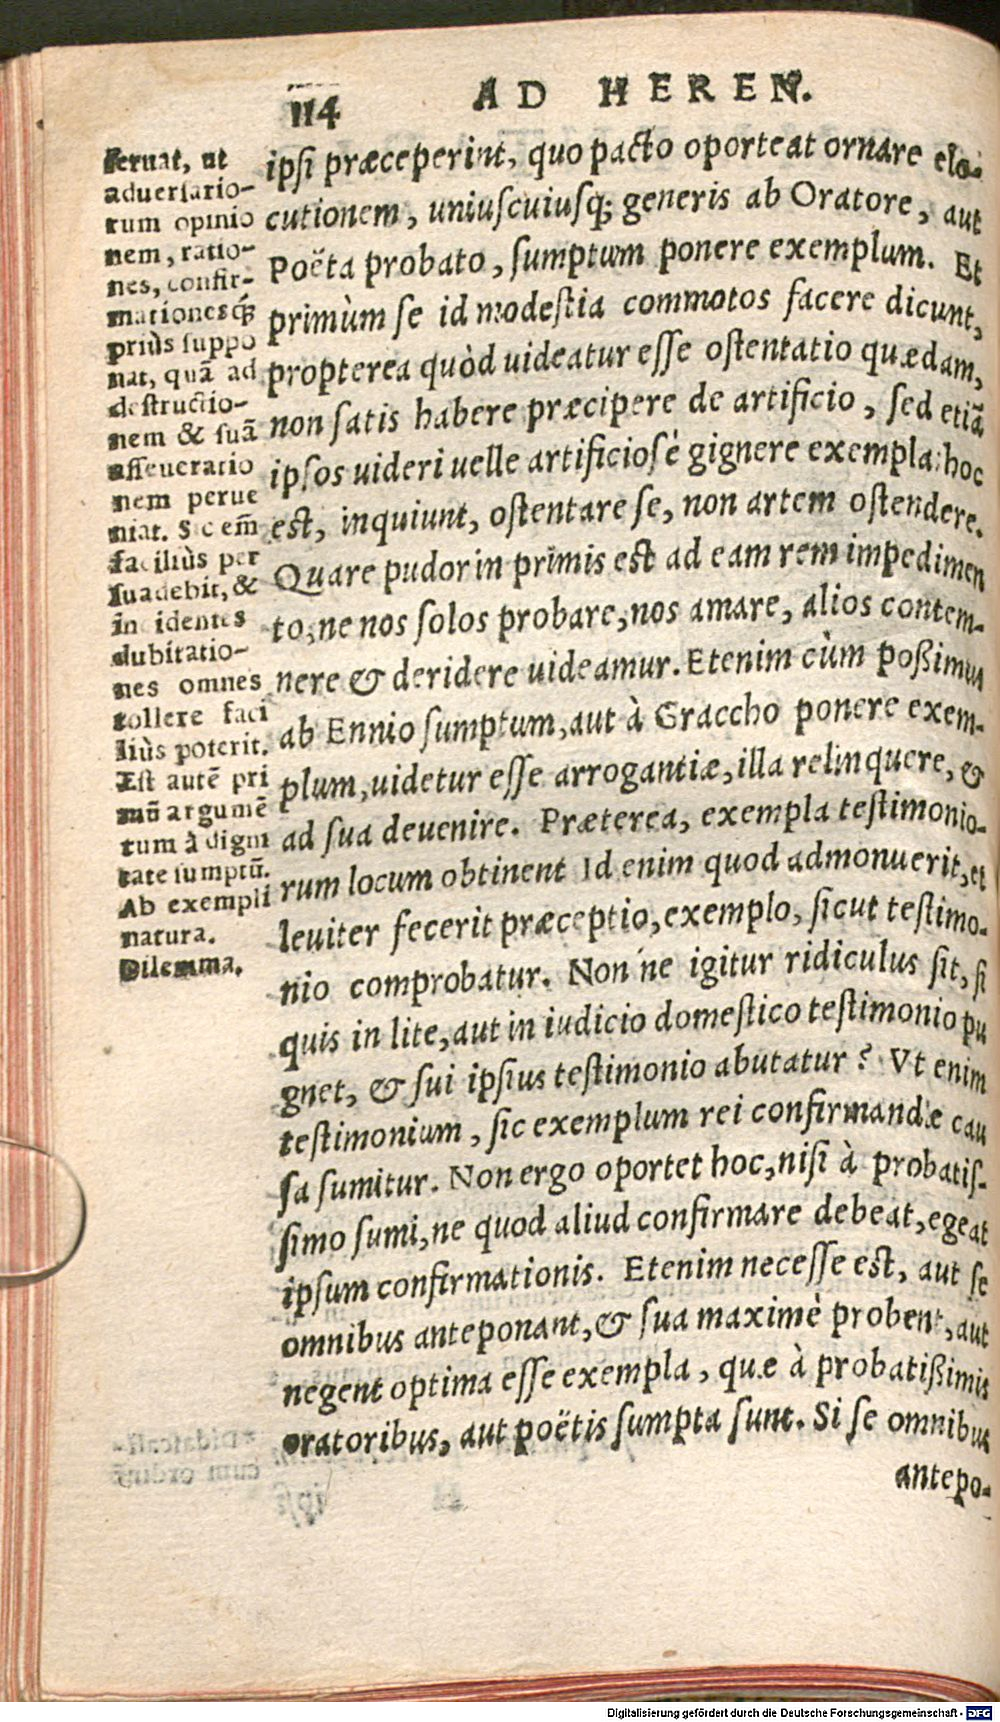 114 AD HEREN.
seruat, ut
aduersario-
rum opinio
nem, ratio-
nes, confir-
mationesq́;
priùs suppo
nat, quā ad
destructio-
nem & suā
asseueratio
nem perue
niat. Sic em̄
faciliùs per
suadebit, &
incidentes
dubitatio-
nes omnes
tollere faci
liùs poterit.
Est autē pri
mū argumē
tum à digni
tate sumptū.
Ab exempli
natura.
Dilemma.
ipsi præceperint, quo pacto oporteat ornare elo-
cutionem, uniuscuiusq; generis ab Oratore, aut
Poëta probato, sumptum ponere exemplum. Et
primùm se id modestia commotos facere dicunt,
propterea quòd uideatur esse ostentatio quædam,
non satis habere præcipere de artificio, sed etiā
ipsos uideri uelle artificiosè gignere exempla: hoc
est, inquiunt, ostentare se, non artem ostendere.
Quare pudor in primis est ad eam rem impedimen
to, ne nos solos probare, nos amare, alios contem-
nere & deridere uideamur. Etenim cùm poßimus
ab Ennio sumptum, aut à Graccho ponere exem-
plum, uidetur esse arrogantiæ, illa relinquere, &
ad sua deuenire. Præterea, exempla testimonio-
rum locum obtinent Id enim quod admonuerit, et
leuiter fecerit præceptio, exemplo, sicut testimo-
nio comprobatur. Non ne igitur ridiculus sit, si
quis in lite, aut in iudicio domestico testimonio pu
gnet, & sui ipsius testimonio abutatur? Vt enim
testimonium, sic exemplum rei confirmandæ cau
sa sumitur. Non ergo oportet hoc, nisi à probatis-
simo sumi, ne quod aliud confirmare debeat, egeat
ipsum confirmationis. Etenim necesse est, aut se
omnibus anteponant, & sua maximè probent, aut
negent optima esse exempla, quæ à probatißimis
oratoribus, aut poëtis sumpta sunt. Si se omnibus
antepo-
Digitalisierung gefördert durch die Deutsche Forschungsgemeinschaft - DFG